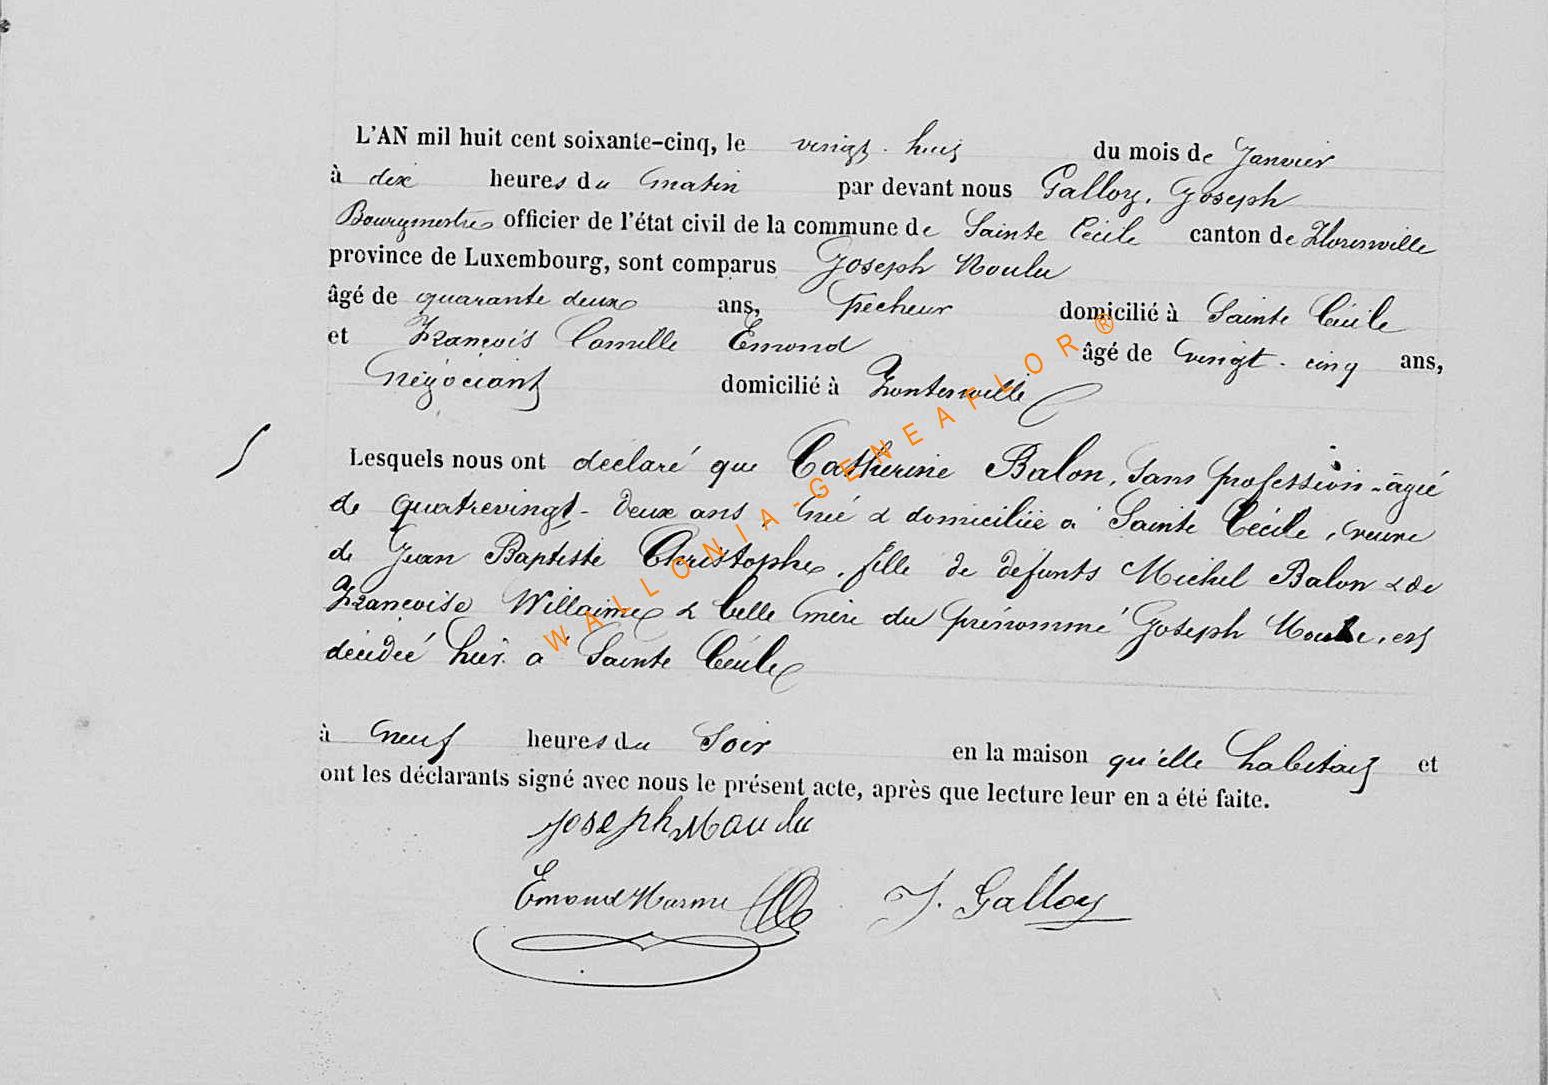 L'AN mil huit cent soixante-cinq, le vingt-huit du mois de Janvier
à dix heures du matin par devant nous Galloy, Joseph
Bourgmestre officier de l'état civil de la commune de Sainte Cécile canton de Florenville
province de Luxembourg, sont comparus Joseph
âgé de quarante deux ans, domicilié à Sainte Cécile
et François Camille Emond âgé de vingt-cinq ans,
négociant domicilié à
Lesquels nous ont déclaré que Catherine Balon, sans profession, âgée
de quatrevingt-deux ans, née & domiciliée à Sainte Cécile, veuve
de Jean Baptiste Christophe, fille de défunts Michel Balon & de
Françoise Willaime & belle mère du prénommé Joseph, est
décédée hier à Sainte Cécile
à neuf heures du soir en la maison qu'elle habitait et
ont les déclarants signé avec nous le présent acte, après que lecture leur en a été faite.
Joseph
Emond J. Galloy
WALLONIA-GENEAFLOR®